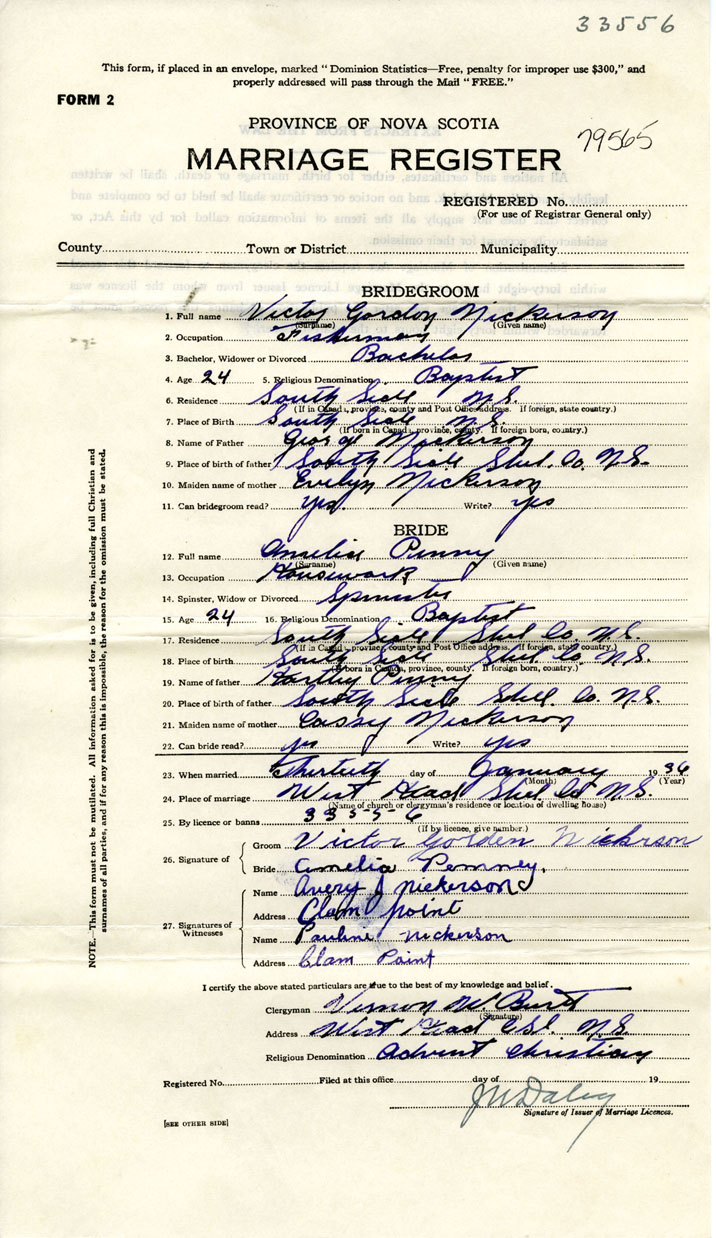 33556
This form, if placed in an envelope, marked "Dominion Statistics—Free, penalty for improper use $300," and
properly addressed will pass through the Mail "FREE."
FORM 2
PROVINCE OF NOVA SCOTIA
79565
MARRIAGE REGISTER
REGISTERED No.
(For use of Registrar General only)
County Town or District Municipality
BRIDEGROOM
1. Full name Victor Gordon Nickerson
(Surname) (Given name)
2. Occupation Fisherman
3. Bachelor, Widower or Divorced Bachelor
4. Age 24 5. Religious Denomination Baptist
6. Residence South Side N.S.
(If in Canada, province, county and Post Office address. If foreign, state country.)
7. Place of Birth South Side N.S.
(If born in Canada, province, county. If foreign born, country.)
8. Name of Father George Nickerson
9. Place of birth of father South Side Shel. Co. N.S.
10. Maiden name of mother Evelyn Nickerson
11. Can bridegroom read? yes. Write? yes
BRIDE
12. Full name Amelia Penny
(Surname) (Given name)
13. Occupation Housework
14. Spinster, Widow or Divorced Spinster
15. Age 24 16. Religious Denomination Baptist
17. Residence South Side Shel. Co. N.S.
(If in Canada, province, county and Post Office address. If foreign, state country.)
18. Place of birth South Side Shel. Co. N.S.
(If born in Canada, province, county. If foreign born, country.)
19. Name of father Hartly Penny
20. Place of birth of father South Side Shel. Co. N.S.
21. Maiden name of mother Cassy Nickerson
22. Can bride read? yes Write? yes
23. When married Thirtieth day of January 1936
(Month) (Year)
24. Place of marriage West Head Shel Co N.S.
(Name of church or clergyman's residence or location of dwelling house)
25. By licence or banns 335-5-6
(If by licence, give number.)
26. Signature of Groom Victor Golden Nickerson
Bride Amelia Penney,
27. Signatures of Witnesses Name Avery J Nickerson
Address Clam point
Name Pauline Nickerson
Address Clam Point
I certify the above stated particulars are true to the best of my knowledge and belief.
Clergyman Vernon W.
(Signature)
Address West Head N.S.
Religious Denomination Advent Christian
Registered No. Filed at this office day of 19
Signature of Issuer of Marriage Licences.
[SEE OTHER SIDE]
NOTE.—This form must not be mutilated. All information asked for is to be given, including full Christian and
surnames of all parties, and if for any reason this is impossible, the reason for the omission must be stated.